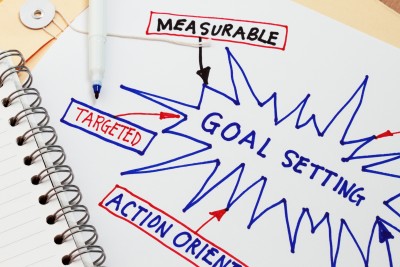 MEASURABLE
TARGETED
GOAL SETTING
ACTION ORIENT